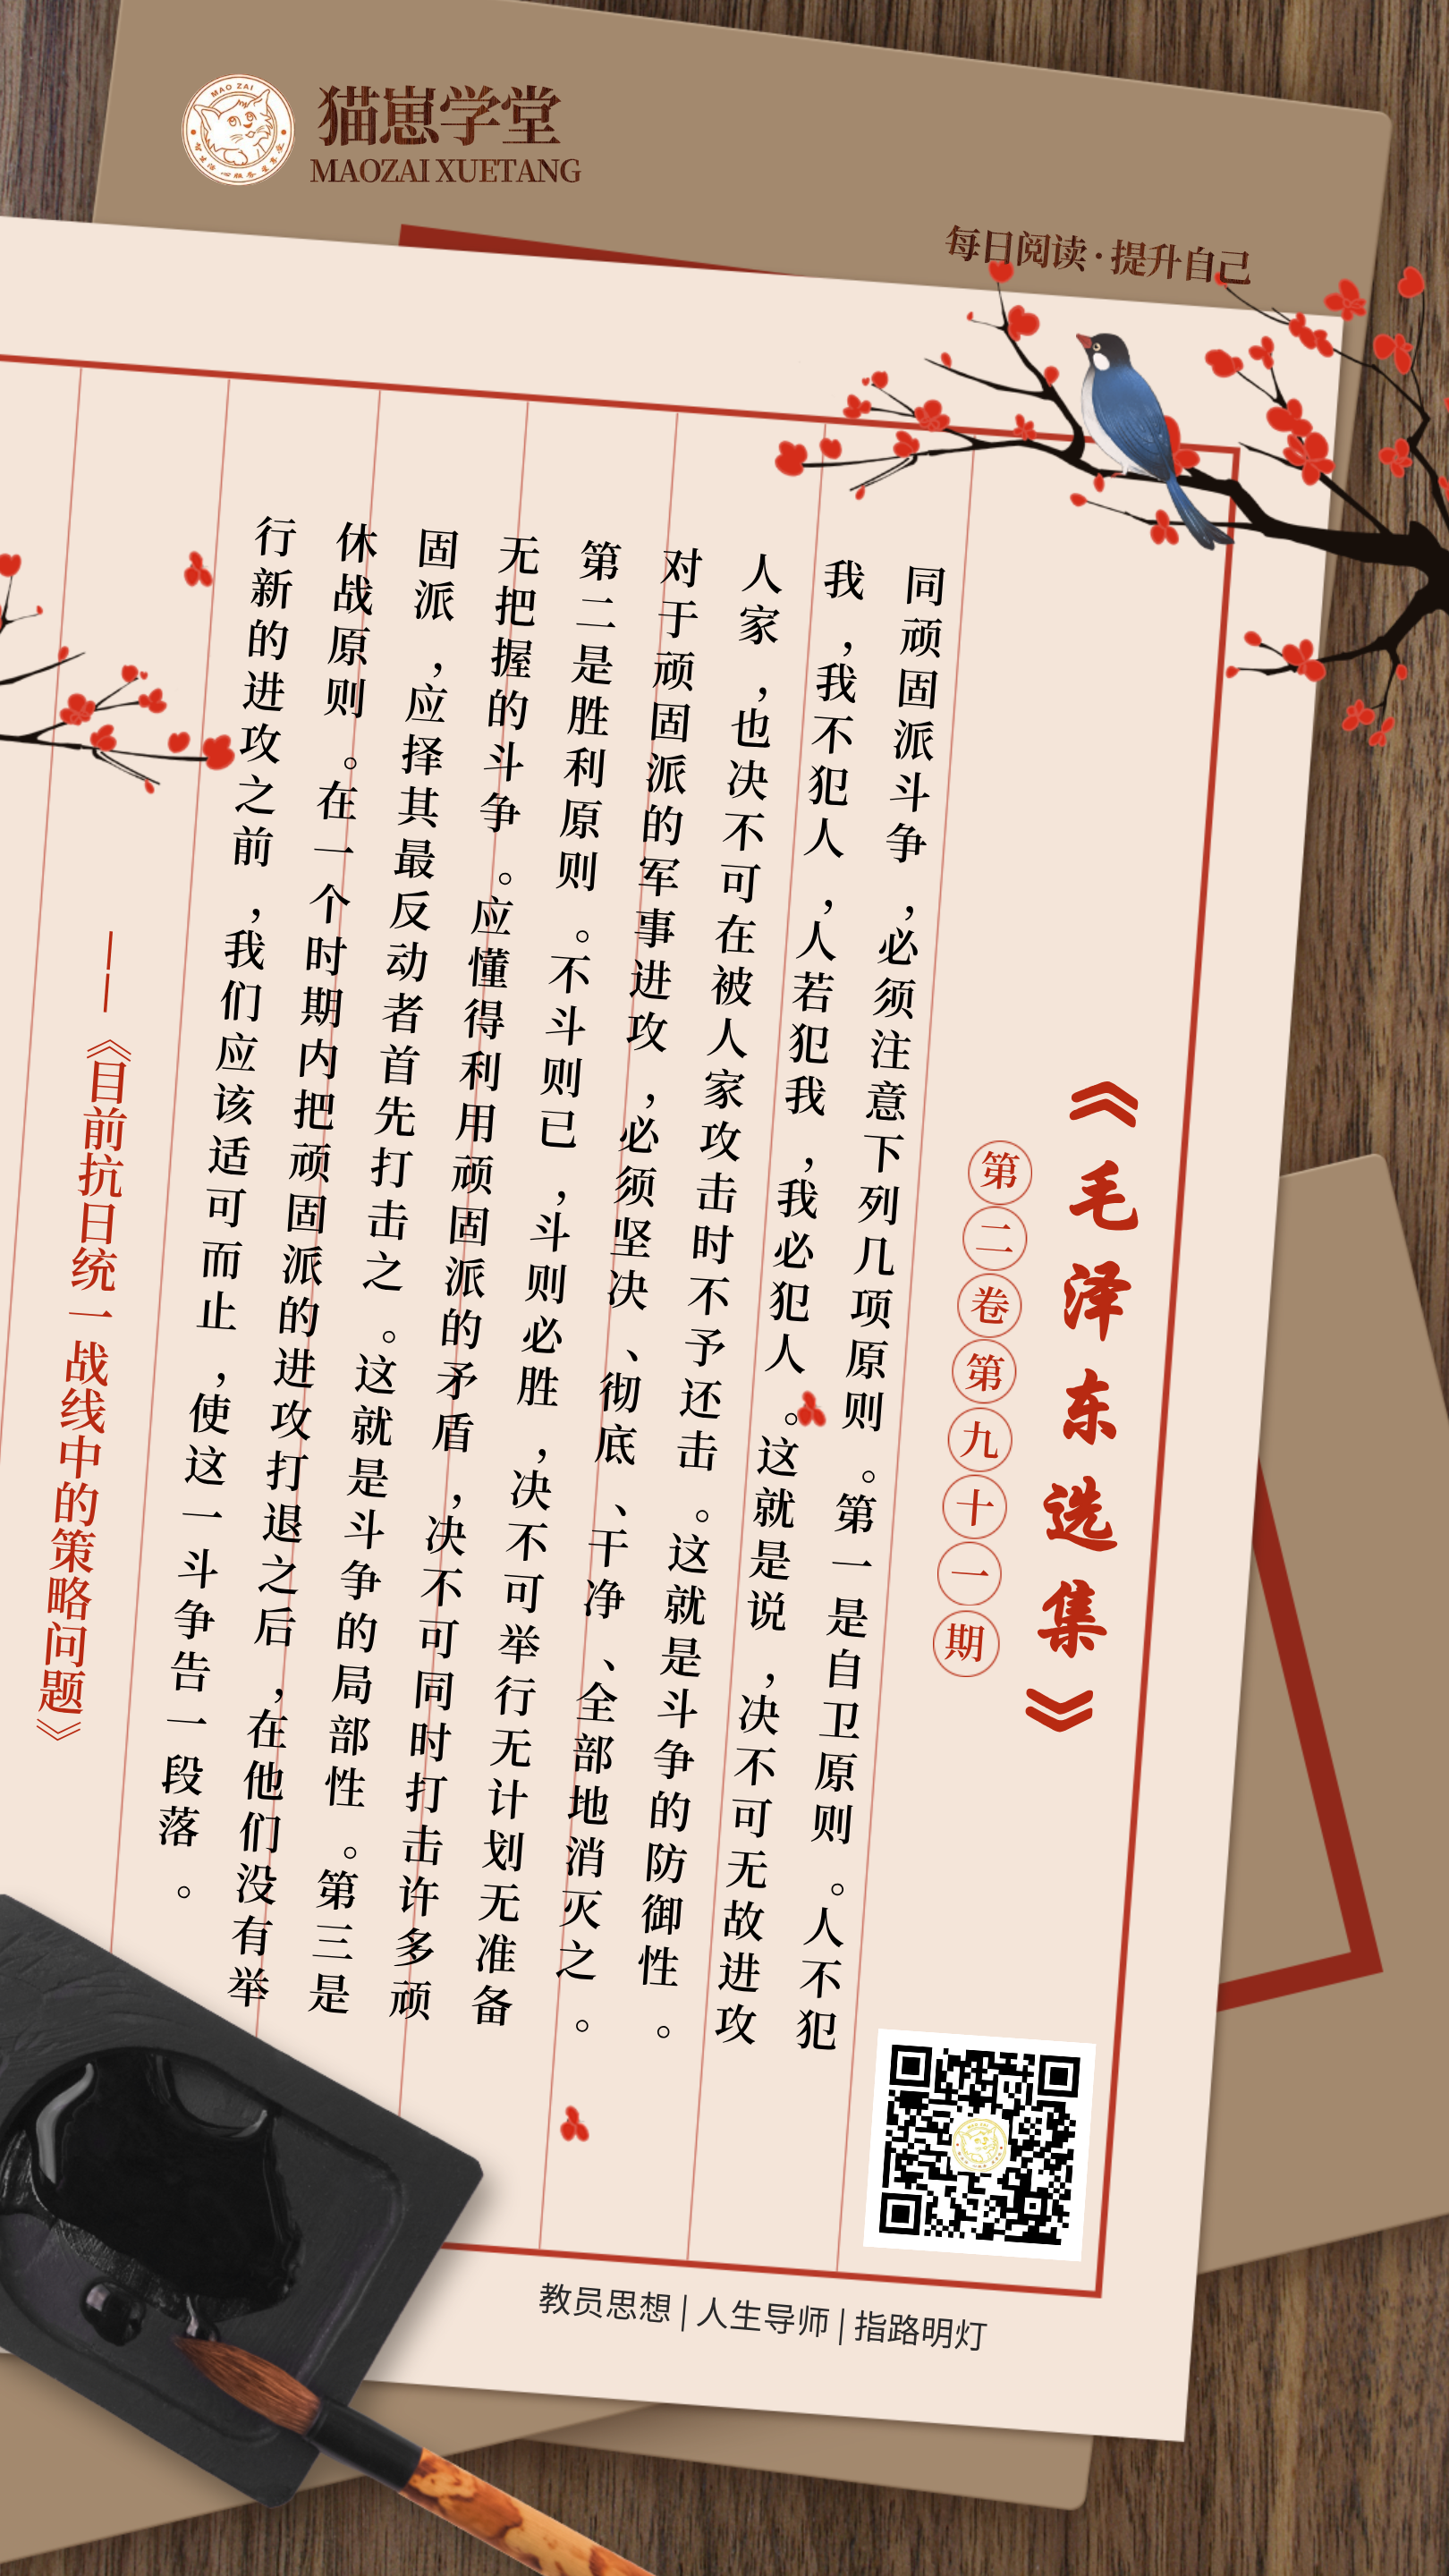 MAO ZAI
猫崽学堂
MAOZAI XUETANG
每日阅读·提升自己
《毛泽东选集》
第二卷第九十一期
同顽固派斗争，必须注意下列几项原则。第一是自卫原则。人不犯
我，我不犯人，人若犯我，我必犯人。这就是说，决不可无故进攻
人家，也决不可在被人家攻击时不予还击。这就是斗争的防御性。
对于顽固派的军事进攻，必须坚决、彻底、干净、全部地消灭之。
第二是胜利原则。不斗则已，斗则必胜，决不可举行无计划无准备
无把握的斗争。应懂得利用顽固派的矛盾，决不可同时打击许多顽
固派，应择其最反动者首先打击之。这就是斗争的局部性。第三是
休战原则。在一个时期内把顽固派的进攻打退之后，在他们没有举
行新的进攻之前，我们应该适可而止，使这一斗争告一段落。
——《目前抗日统一战线中的策略问题》
教员思想|人生导师|指路明灯